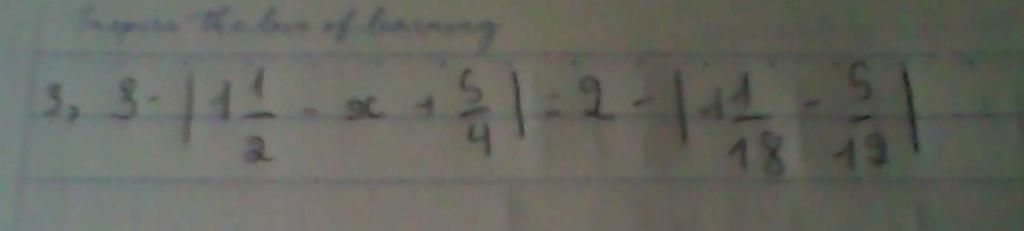 Inspire the love of learning
3, 3 · | 1 1/2 - x + 5/4 | = 2 - | 11/18 - 5/12 |